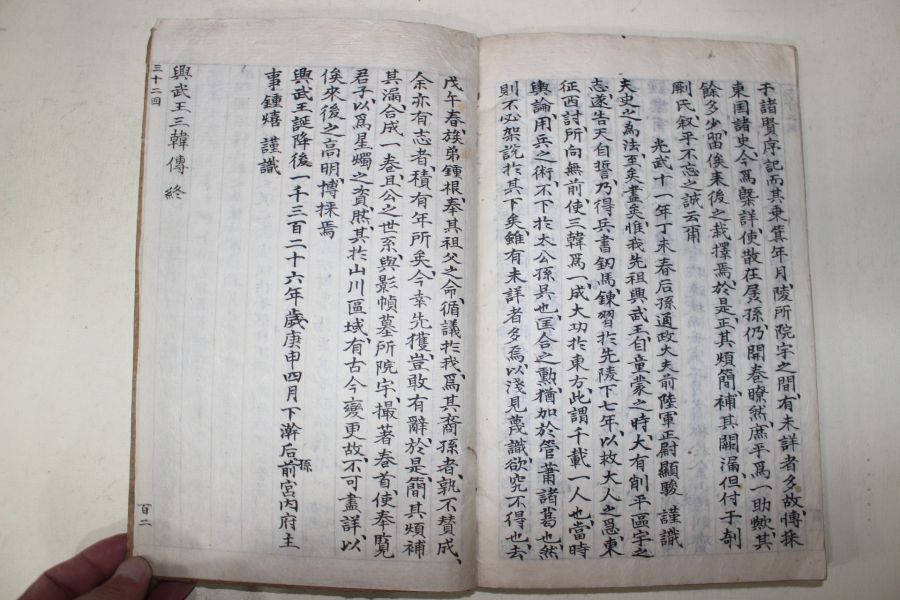 于諸賢序記而其東箕年月陵所院宇之間有未詳者多故傍採
東国諸史今爲槩詳使散在孱孫仍開卷瞭然庶乎爲一助歟其
餘多少留俟来後之栽擇焉於是正其煩簡補其闕漏但付于剞
劂氏叙乎不忘之誠云爾
光武十一年丁未春后孫通政大夫前陸軍正尉顯駿 謹識
夫史之爲法至矣盡矣惟我先祖興武王自童蒙之時大有削平區宇之
志遂告天自誓乃得兵書釰馬錬習於先陵下七年以救大人之急東
征西討所向無前使三韓爲一成大功於東方此謂千載一人也當時
輿論用兵之術不下於太公孫吳也匡合之勳猶加於管蕭諸葛也然
則不必架說於其下矣雖有未詳者多焉以淺見蔑識欲究不得也去
戊午春族弟鍾根奉其祖父之命循議於我爲其裔孫者孰不賛成
余亦有志者積有年所矣今幸先獲豈敢有辭於是簡其煩補
其漏合成一卷且公之世系與影幀墓所院宇撮著卷首使奉覧
君子以爲星燭之資然其於山川區域有古今變更故不可盡詳以
俟來後之高明博採焉
興武王誕降後一千三百二十六年歲庚申四月下澣后孫前宮內府主
事鍾熺 謹識
興武王三韓傳 終
三十二回
百二